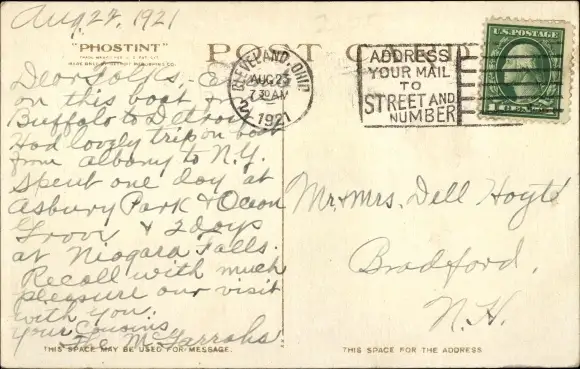 Aug 22, 1921
"PHOSTINT"
POST CARD
Dear folks, - Are
on this boat from
Buffalo to Detroit
Had lovely trip on boat
from Albany to N.Y.
Spent one day at
Asbury Park & Ocean
Grove & 2 days
at Niagara Falls.
Recall with much
pleasure our visit
with you.
Your cousins,
The McGarrahs
THIS SPACE MAY BE USED FOR MESSAGE.
CLEVELAND, OHIO
AUG 23
7 30 AM
1921
ADDRESS
YOUR MAIL
TO
STREET AND
NUMBER
U.S. POSTAGE
1 CENT 1
Mr. & Mrs. Dell Hoyt
Bradford,
N.H.
THIS SPACE FOR THE ADDRESS